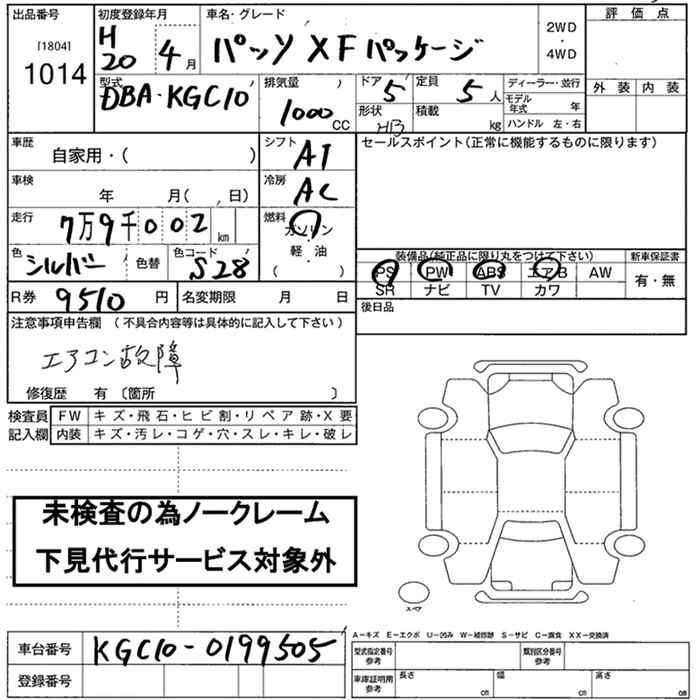 出品番号 初度登録年月 車名・グレード 評価点
[1804] H 2WD
1014 20 4月 パッソ XFパッケージ ・
4WD
型式 排気量 ドア 5 定員 5人 ディーラー・並行 外装 内装
DBA-KGC10 1000 CC 形状 HB 積載 kg モデル年式 年
ハンドル 左・右
車歴 自家用・( ) シフト AT セールスポイント(正常に機能するものに限ります)
車検 年 月( , 日) 冷房 AC
走行 7万9千002 km 燃料 ガソリン
軽・油
( )
色 シルバー 色替 色コード S28
装備品(純正品に限り丸をつけて下さい) 新車保証書
PS PW ABS エアB AW 有・無
SR ナビ TV カワ
R券 9510 円 名変期限 月 日 後日品
注意事項申告欄 (不具合内容等は具体的に記入して下さい)
エアコン故障
修復歴 有 〔箇所 〕
検査員 FW キズ・飛石・ヒビ割・リペア跡・X要
記入欄 内装 キズ・汚レ・コゲ・穴・スレ・キレ・破レ
未検査の為ノークレーム
下見代行サービス対象外
スペア
A-キズ E-エクボ U-凹み W-補修跡 S-サビ C-腐食 XX-交換済
車台番号 KGC10-0199505 型式指定番号 参考 類別区分番号 参考
登録番号 車庫証明用 参考 長さ cm 幅 cm 高さ cm